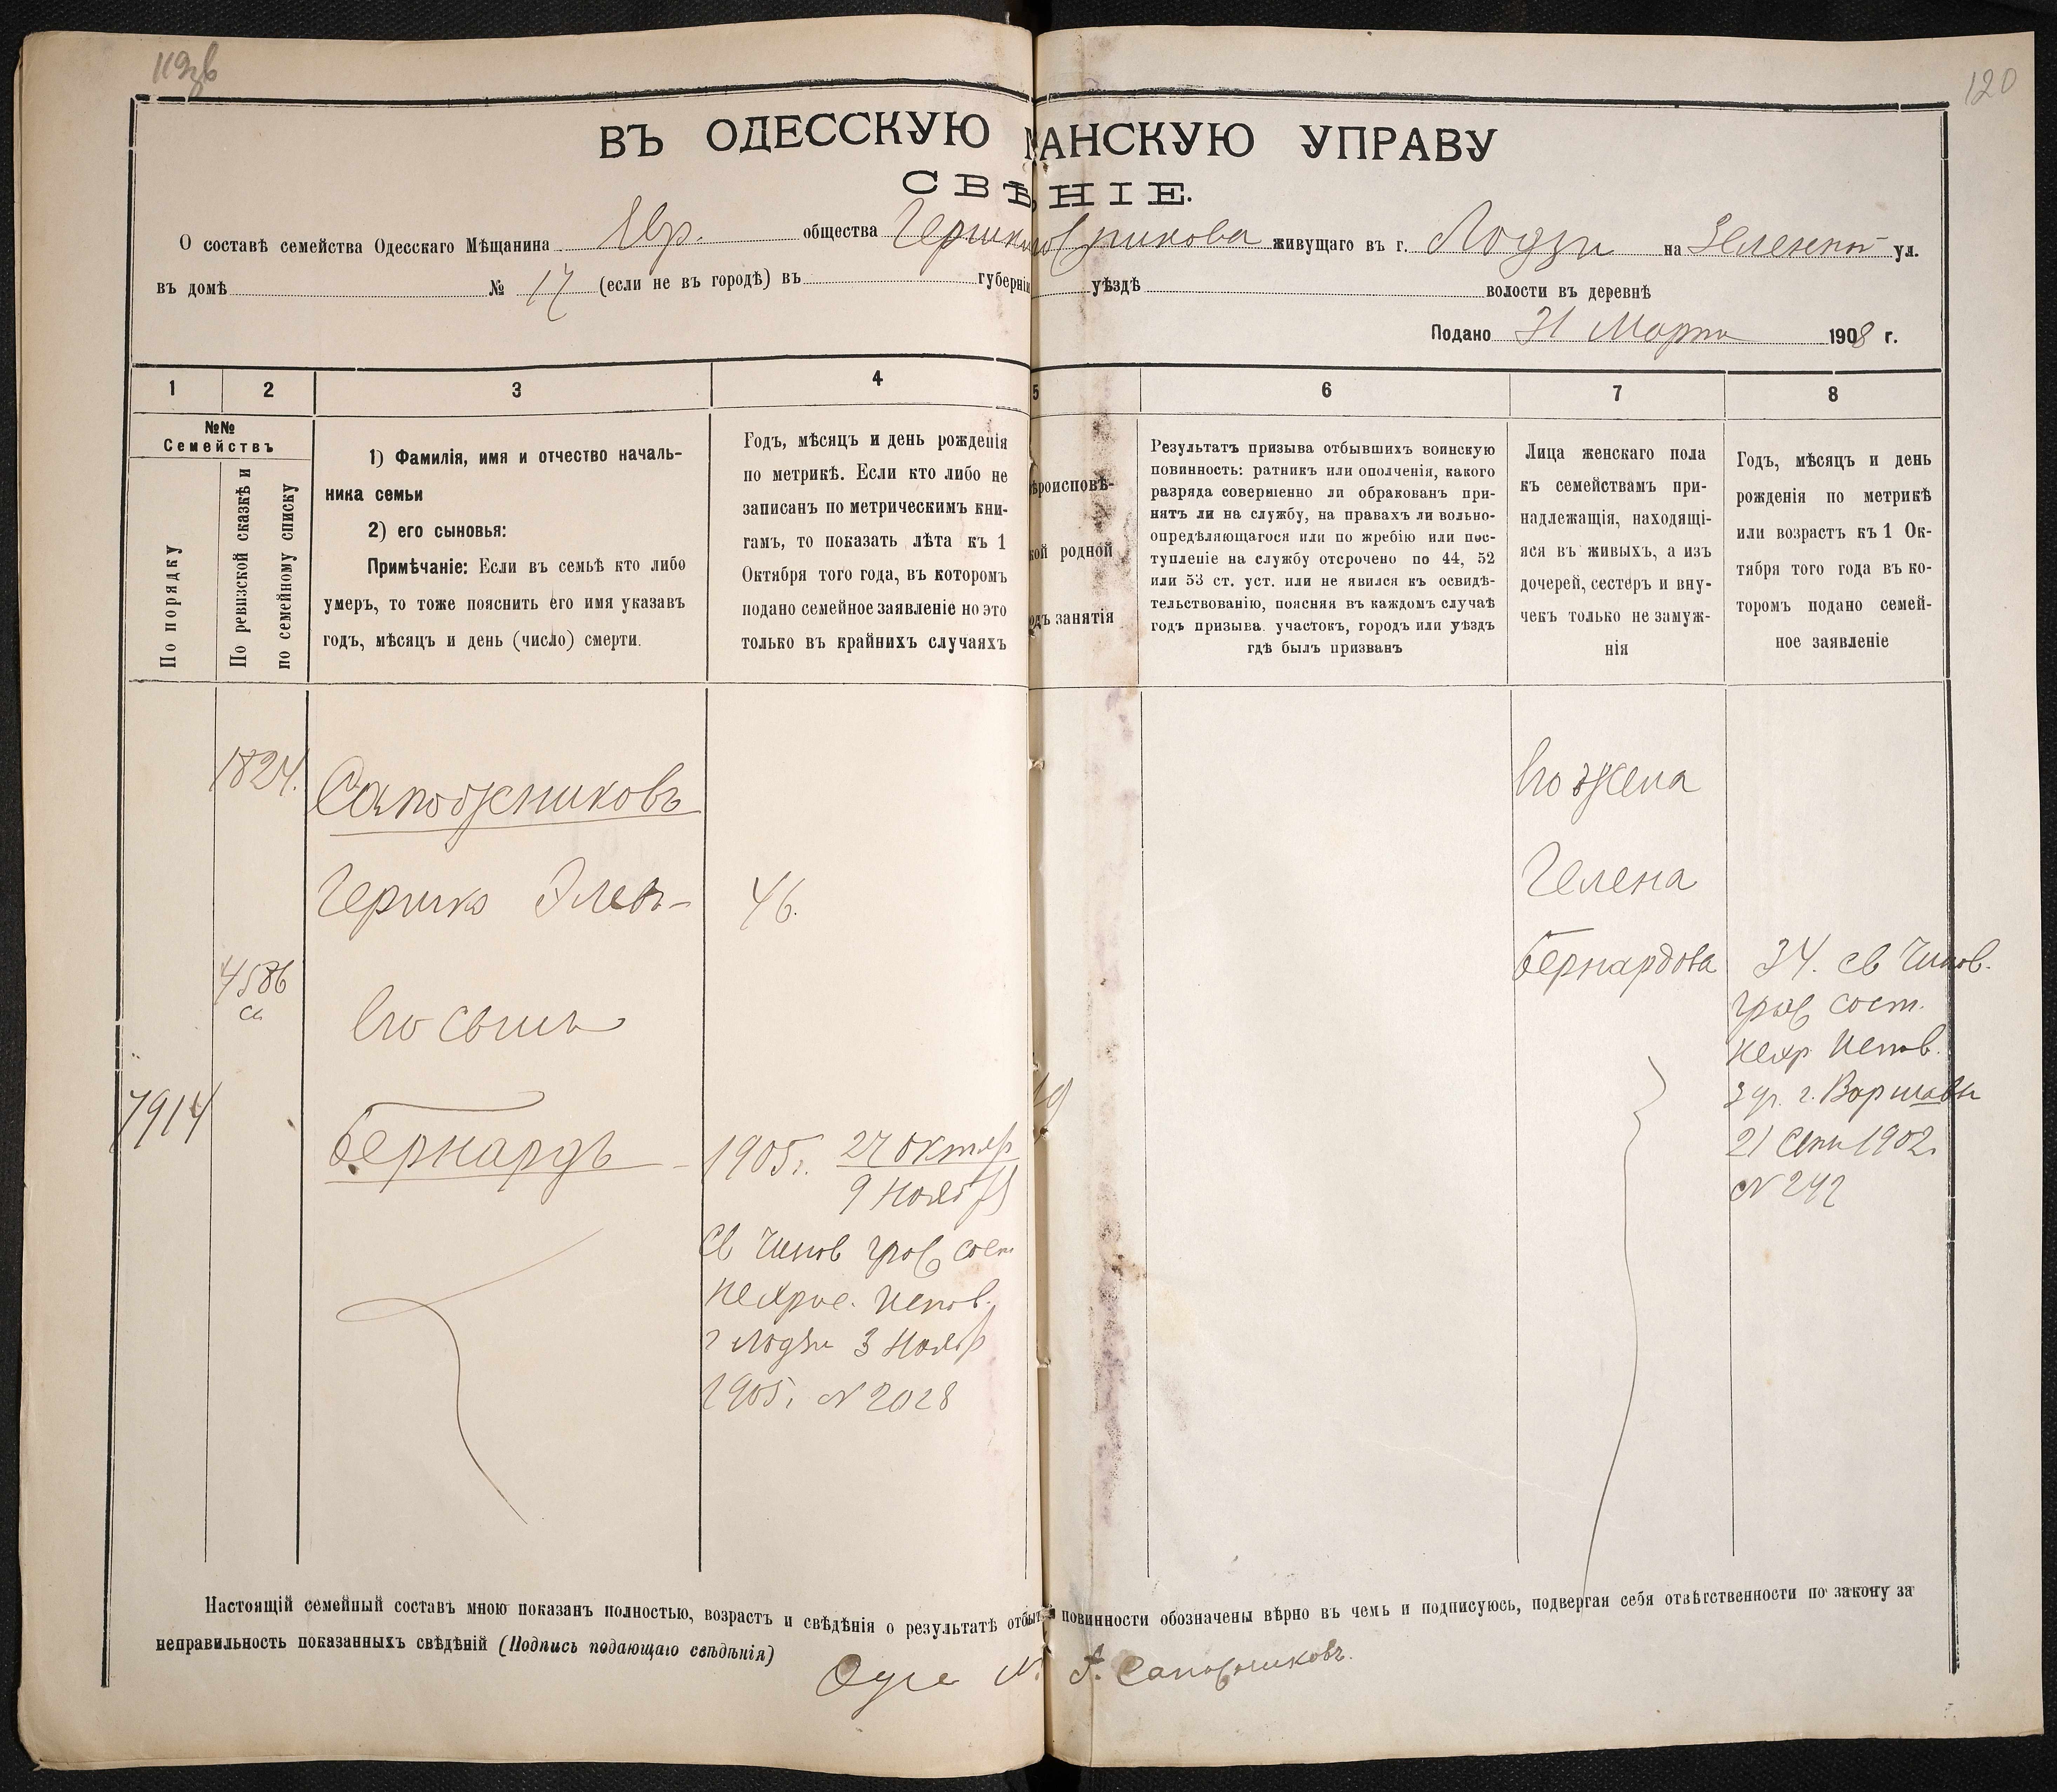 120
ВЪ ОДЕССКУЮ АНСКУЮ УПРАВУ
СВѢНІЕ.
О составѣ семейства Одесскаго Мѣщанина Евр. общества живущаго въ г. Лодзи на Зеленой ул.
въ домѣ № 17 (если не въ городѣ) въ губерніи уѣздѣ волости въ деревнѣ
Подано 31 Марта 1908 г.
1 2 3 4 5 6 7 8
№№
Семействъ
По порядку
По ревизской сказкѣ и
по семейному списку
1) Фамилія, имя и отчество началь-
ника семьи
2) его сыновья:
Примѣчаніе: Если въ семьѣ кто либо
умеръ, то тоже пояснить его имя указавъ
годъ, мѣсяцъ и день (число) смерти.
Годъ, мѣсяцъ и день рожденія
по метрикѣ. Если кто либо не
записанъ по метрическимъ кни-
гамъ, то показать лѣта къ 1
Октября того года, въ которомъ
подано семейное заявленіе но это
только въ крайнихъ случаяхъ
ѣроисповѣ-
кой родной
одъ занятія
Результатъ призыва отбывшихъ воинскую
повинность: ратникъ или ополченія, какого
разряда совершенно ли обракованъ при-
нятъ ли на службу, на правахъ ли вольно-
опредѣляющагося или по жребію или пос-
тупленіе на службу отсрочено по 44, 52
или 53 ст. уст. или не явился къ освидѣ-
тельствованію, поясняя въ каждомъ случаѣ
годъ призыва. участокъ, городъ или уѣздъ
гдѣ былъ призванъ
Лица женскаго пола
къ семействамъ при-
надлежащія, находящі-
яся въ живыхъ, а изъ
дочерей, сестеръ и вну-
чекъ только не замуж-
нія
Годъ, мѣсяцъ и день
рожденія по метрикѣ
или возрастъ къ 1 Ок-
тября того года въ ко-
торомъ подано семей-
ное заявленіе
1824.
Сапожниковъ
Гершко 46.
4586
Его сынъ
7914
Бернардъ 1905г. 27 Октяб
9 Нояб
Св Чинов гражд сост
Нехрис. Испов.
г Лодзи 3 Нояб
1905г N 2028
Его жена
Гелена
Бернардова 34. Св Чинов.
гражд сост.
Нехр Испов.
3 уч. г. Варшавы
21 Сент 1902г
N 242
Настоящій семейный составъ мною показанъ полностью, возрастъ и свѣдѣнія о результатѣ отбыт повинности обозначены вѣрно въ чемъ и подписуюсь, подвергая себя отвѣтственности по закону за
неправильность показанныхъ свѣдѣній (Подпись подающаго свѣдѣнія)
Сапожниковъ.